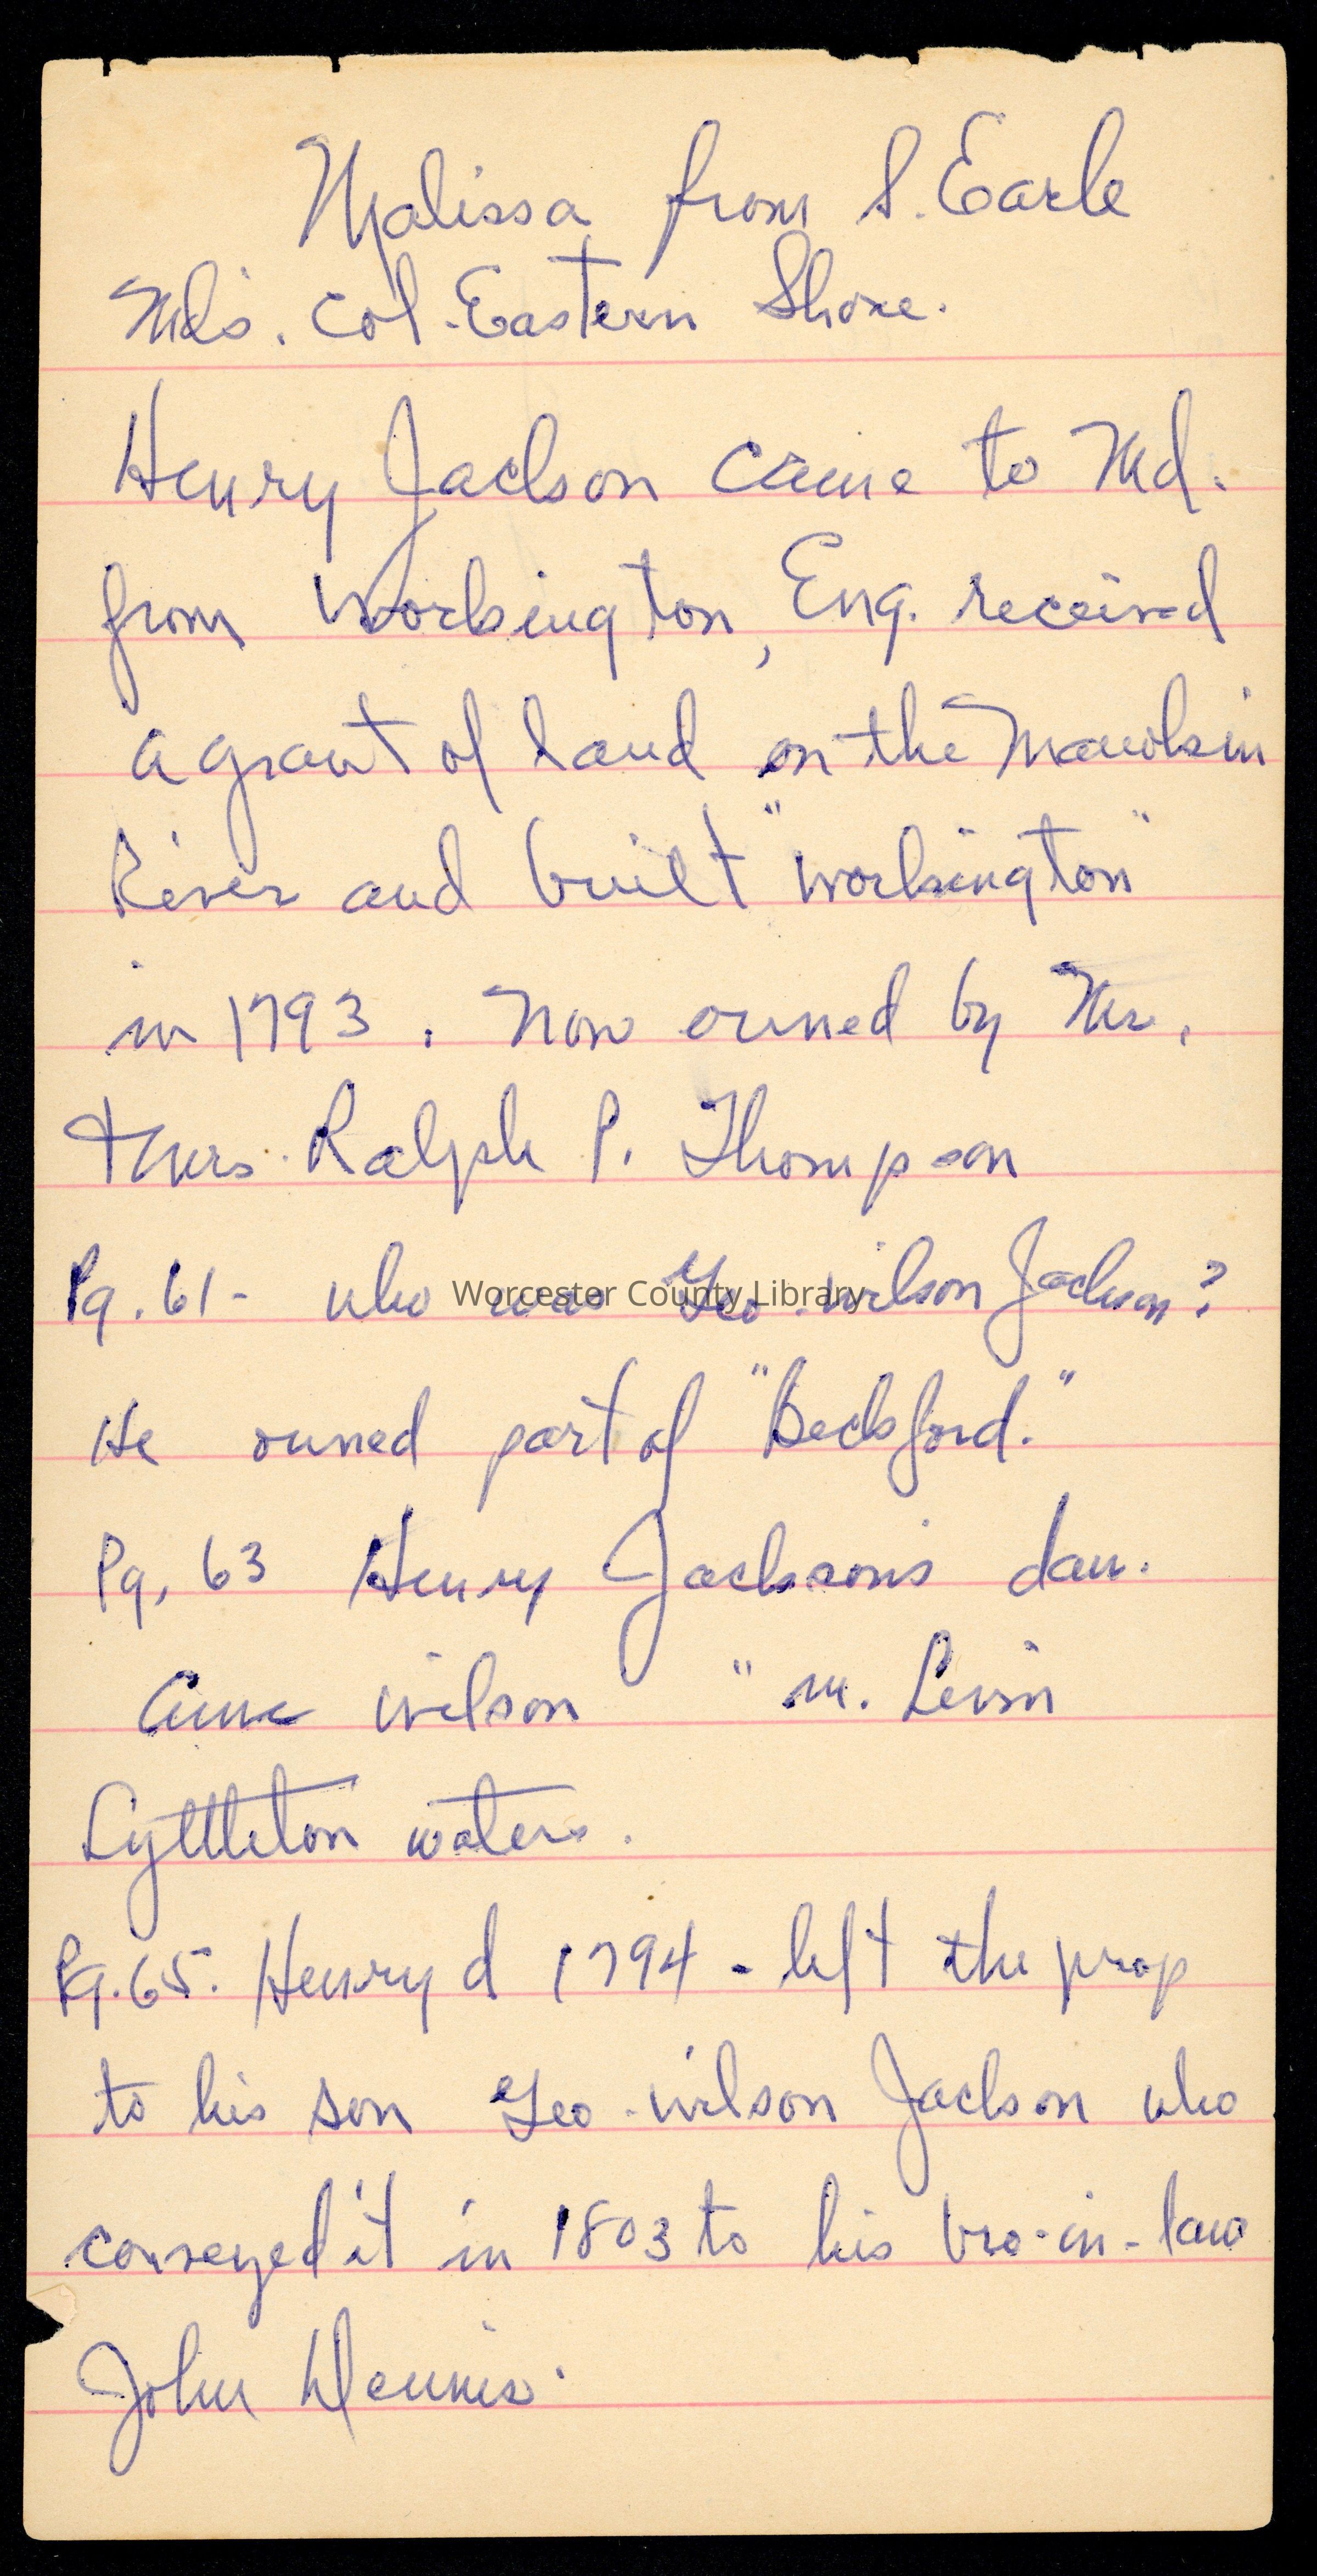 Malissa from S. Earle
Md's. Col. Eastern Shore.
Henry Jackson came to Md.
from Workington, Eng. received
a grant of land on the Manokin
River and built "Workington"
in 1793. Now owned by Mr.
+ Mrs. Ralph P. Thompson
Pg. 61- who was Geo. Wilson Jackson?
Worcester County Library
He owned part of "Beckford."
Pg. 63 Henry Jackson's dau.
Anne Wilson " m. Levin
Lyttleton Waters.
Pg. 65. Henry d 1794 - left the prop
to his son Geo. Wilson Jackson who
conveyed it in 1803 to his bro-in-law
John Dennis.